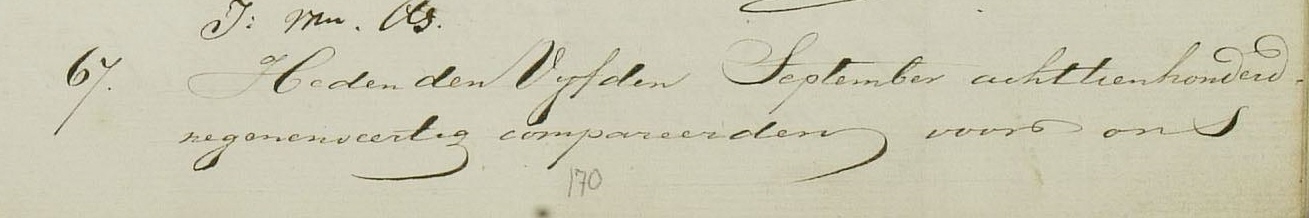 67. Heden den Vyfden September achttienhonderd
negenenveertig compareerden voor ons
170